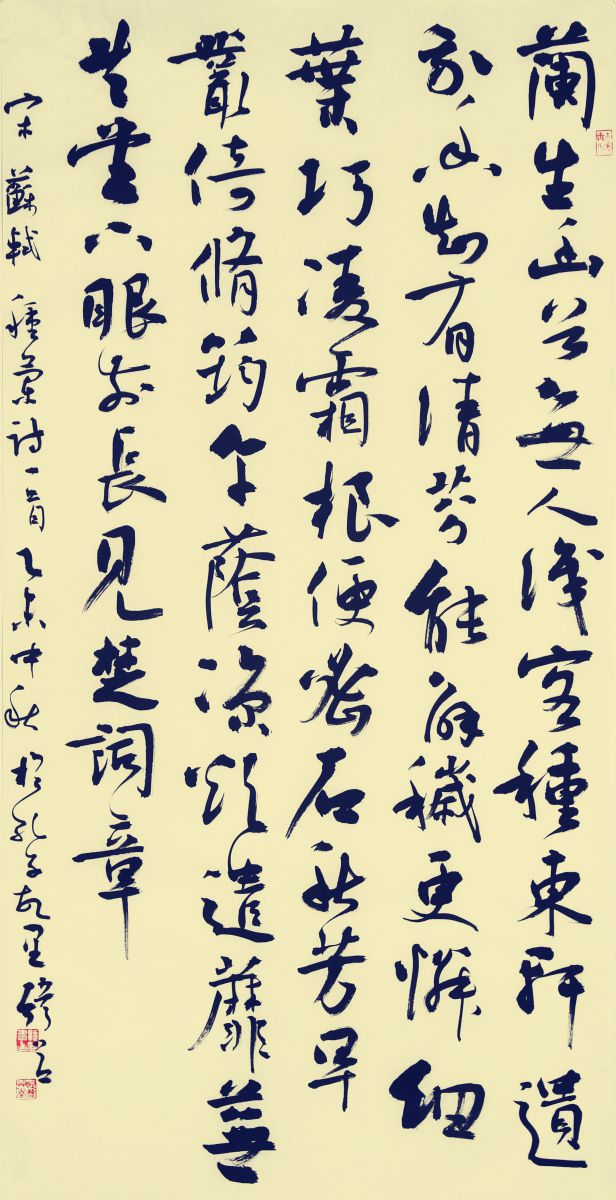 蘭生幽谷無人識客種東軒遺
我香知有清芬能解穢更憐細
葉巧凌霜根便密石秋芳早
叢倚脩筠午蔭涼欲遣蘼蕪
共堂下眼前長見楚詞章
宋蘇軾種蘭詩一首乙未中秋於孔子故里